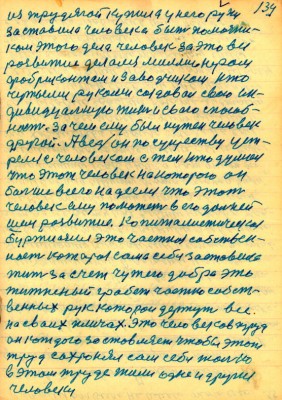 134
из трудягой купила у него руки
заставила человека быть помощни-
ком этого дела человек за это вы
развитие делаец миллионером
фабрикантом и заводчиком кто
чужыми руками создовал свою ин-
дивидуалную жизнь своего способ-
ност. Зачем ему был нужен человек
другой. А ведь он по существу уст-
реми с человеком с тем кто думал
что этот человек на которого он
болше всего надеелся что этот
человек ему поможет в его далней
шем развитие. Капиталистическоя
буржуазия это частная собствен-
ност котороя сама себя заставила
жить за счет чужого добра это
частно собст-
венных рук которой держут все.
на своих плечах. Это человеков труд
он каждого заставляет чтобы этот
труд сохронял сам себя только
в этом труде жили одне и другия
человеки